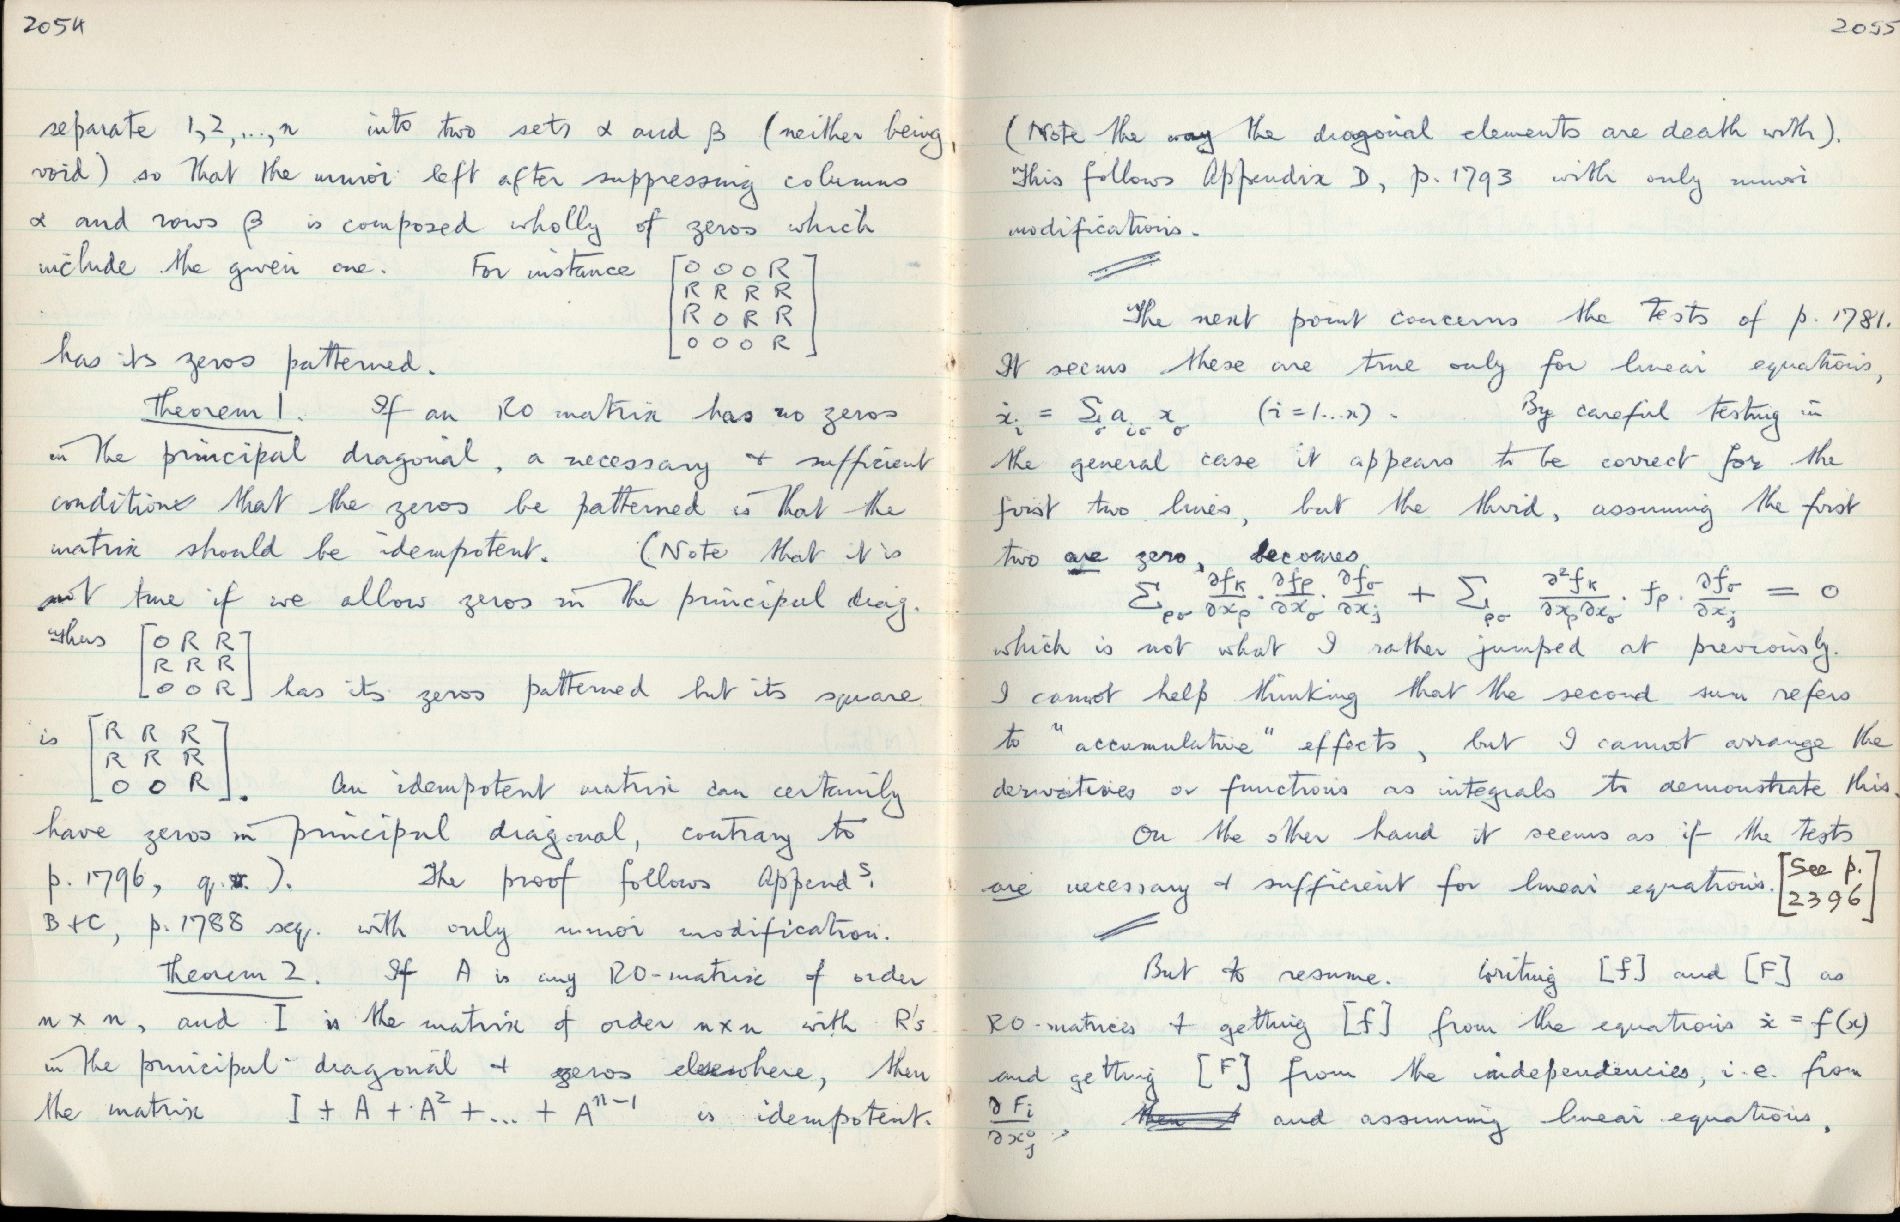 2054
separate 1,2,...,n into two sets α and β (neither being
void) so that the minor left after suppressing columns
α and rows β is composed wholly of zeros which
include the given one. For instance [0 0 0 R
R R R R
R 0 R R
0 0 0 R]
has its zeros patterned.
Theorem 1. If an RO matrix has no zeros
in the principal diagonal, a necessary + sufficient
condition that the zeros be patterned is that the
matrix should be idempotent. (Note that it is
not true if we allow zeros in the principal diag.
Thus [0 R R
R R R
0 0 R] has its zeros patterned but its square
is [R R R
R R R
0 0 R]. An idempotent matrix can certainly
have zeros in principal diagonal, contrary to
p. 1796, q.v.). The proof follows Append^s.
B+C, p. 1788 seq. with only minor modification.
Theorem 2. If A is any RO-matrix of order
n × n, and I is the matrix of order n×n with R's
in the principal diagonal + zeros elsewhere, then
the matrix I + A + A² + ... + Aⁿ⁻¹ is idempotent.
2055
(Note the way the diagonal elements are death with).
This follows Appendix D, p. 1793 with only minor
modifications.
The next point concerns the tests of p. 1781.
It seems these are true only for linear equations,
ẋ_i = Σ_σ a_iσ x_σ (i = 1...n). By careful testing in
the general case it appears to be correct for the
first two lines, but the third, assuming the first
two are zero, becomes
Σ_ρσ ∂f_k/∂x_ρ · ∂f_ρ/∂x_σ · ∂f_σ/∂x_j + Σ_ρσ ∂²f_k/∂x_ρ∂x_σ · f_ρ · ∂f_σ/∂x_j = 0
which is not what I rather jumped at previously.
I cannot help thinking that the second sum refers
to "accumulative" effects, but I cannot arrange the
derivatives or functions as integrals to demonstrate this.
On the other hand it seems as if the tests
are necessary + sufficient for linear equations. [See p.
2396]
But to resume. Writing [f] and [F] as
RO-matrices + getting [f] from the equations ẋ = f(x)
and getting [F] from the independencies, i.e. from
∂F_i/∂x_j⁰, and assuming linear equations,